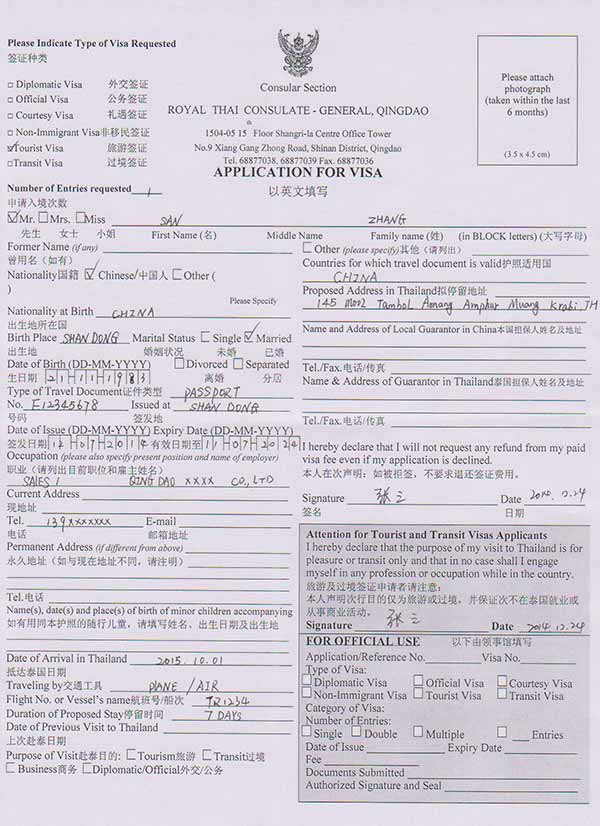 Please Indicate Type of Visa Requested
签证种类
Diplomatic Visa 外交签证
Official Visa 公务签证
Courtesy Visa 礼遇签证
Non-Immigrant Visa非移民签证
Tourist Visa 旅游签证
Transit Visa 过境签证
Number of Entries requested 1
申请入境次数
Consular Section
ROYAL THAI CONSULATE - GENERAL, QINGDAO
1504-05 15 Floor Shangri-la Centre Office Tower
No.9 Xiang Gang Zhong Road, Shinan District, Qingdao
Tel. 68877038, 68877039 Fax. 68877036
APPLICATION FOR VISA
以英文填写
Please attach
photograph
(taken within the last
6 months)
(3.5 x 4.5 cm)
Mr. Mrs. Miss SAN ZHANG
先生 女士 小姐 First Name (名) Middle Name Family name (姓) (in BLOCK letters) (大写字母)
Former Name (if any)
曾用名（如有）
Nationality国籍 Chinese/中国人 Other (
)
Please Specify
Nationality at Birth CHINA
出生地所在国
Birth Place SHANDONG Marital Status Single Married
出生地 婚姻状况 未婚 已婚
Date of Birth (DD-MM-YYYY) Divorced Separated
生日期 21 11 1983 离婚 分居
Type of Travel Document证件类型 PASSPORT
No. E12345678 Issued at SHAN DONG
号码 签发地
Date of Issue (DD-MM-YYYY) Expiry Date (DD-MM-YYYY)
签发日期 12 07 2014 有效日期至 11 07 2024
Occupation (please also specify present position and name of employer)
职业（请列出目前职位和雇主姓名）
SALES / QINGDAO XXXX CO., LTD
Current Address
现地址
Tel. 139XXXXXXX E-mail
电话 邮箱地址
Permanent Address (if different from above)
永久地址（如与现在地址不同，请注明）
Tel.电话
Name(s), date(s) and place(s) of birth of minor children accompanying
如有用同本护照的随行儿童，请填写姓名、出生日期及出生地
Date of Arrival in Thailand 2015.10.01
抵达泰国日期
Traveling by交通工具 PLANE / AIR
Flight No. or Vessel's name航班号/船次 TR1234
Duration of Proposed Stay停留时间 7 DAYS
Date of Previous Visit to Thailand
上次赴泰日期
Purpose of Visit赴泰目的: Tourism旅游 Transit过境
Business商务 Diplomatic/Official外交/公务
Other (please specify)其他（请列出）
Countries for which travel document is valid护照适用国
CHINA
Proposed Address in Thailand拟停留地址
145 Moo2 Tambol Aonang Amphur Muang Krabi TH
Name and Address of Local Guarantor in China本国担保人姓名及地址
Tel./Fax.电话/传真
Name & Address of Guarantor in Thailand泰国担保人姓名及地址
Tel./Fax.电话/传真
I hereby declare that I will not request any refund from my paid
visa fee even if my application is declined.
本人在次声明：如被拒签，不要求退还签证费用。
Signature 张三 Date 2014.12.24
签名 日期
Attention for Tourist and Transit Visas Applicants
I hereby declare that the purpose of my visit to Thailand is for
pleasure or transit only and that in no case shall I engage
myself in any profession or occupation while in the country.
旅游及过境签证申请者请注意：
本人声明次行目的仅为旅游或过境，并保证次不在泰国就业或
从事商业活动。
Signature 张三 Date 2014.12.24
FOR OFFICIAL USE 以下由领事馆填写
Application/Reference No. Visa No.
Type of Visa:
Diplomatic Visa Official Visa Courtesy Visa
Non-Immigrant Visa Tourist Visa Transit Visa
Category of Visa:
Number of Entries:
Single Double Multiple Entries
Date of Issue Expiry Date
Fee
Documents Submitted
Authorized Signature and Seal